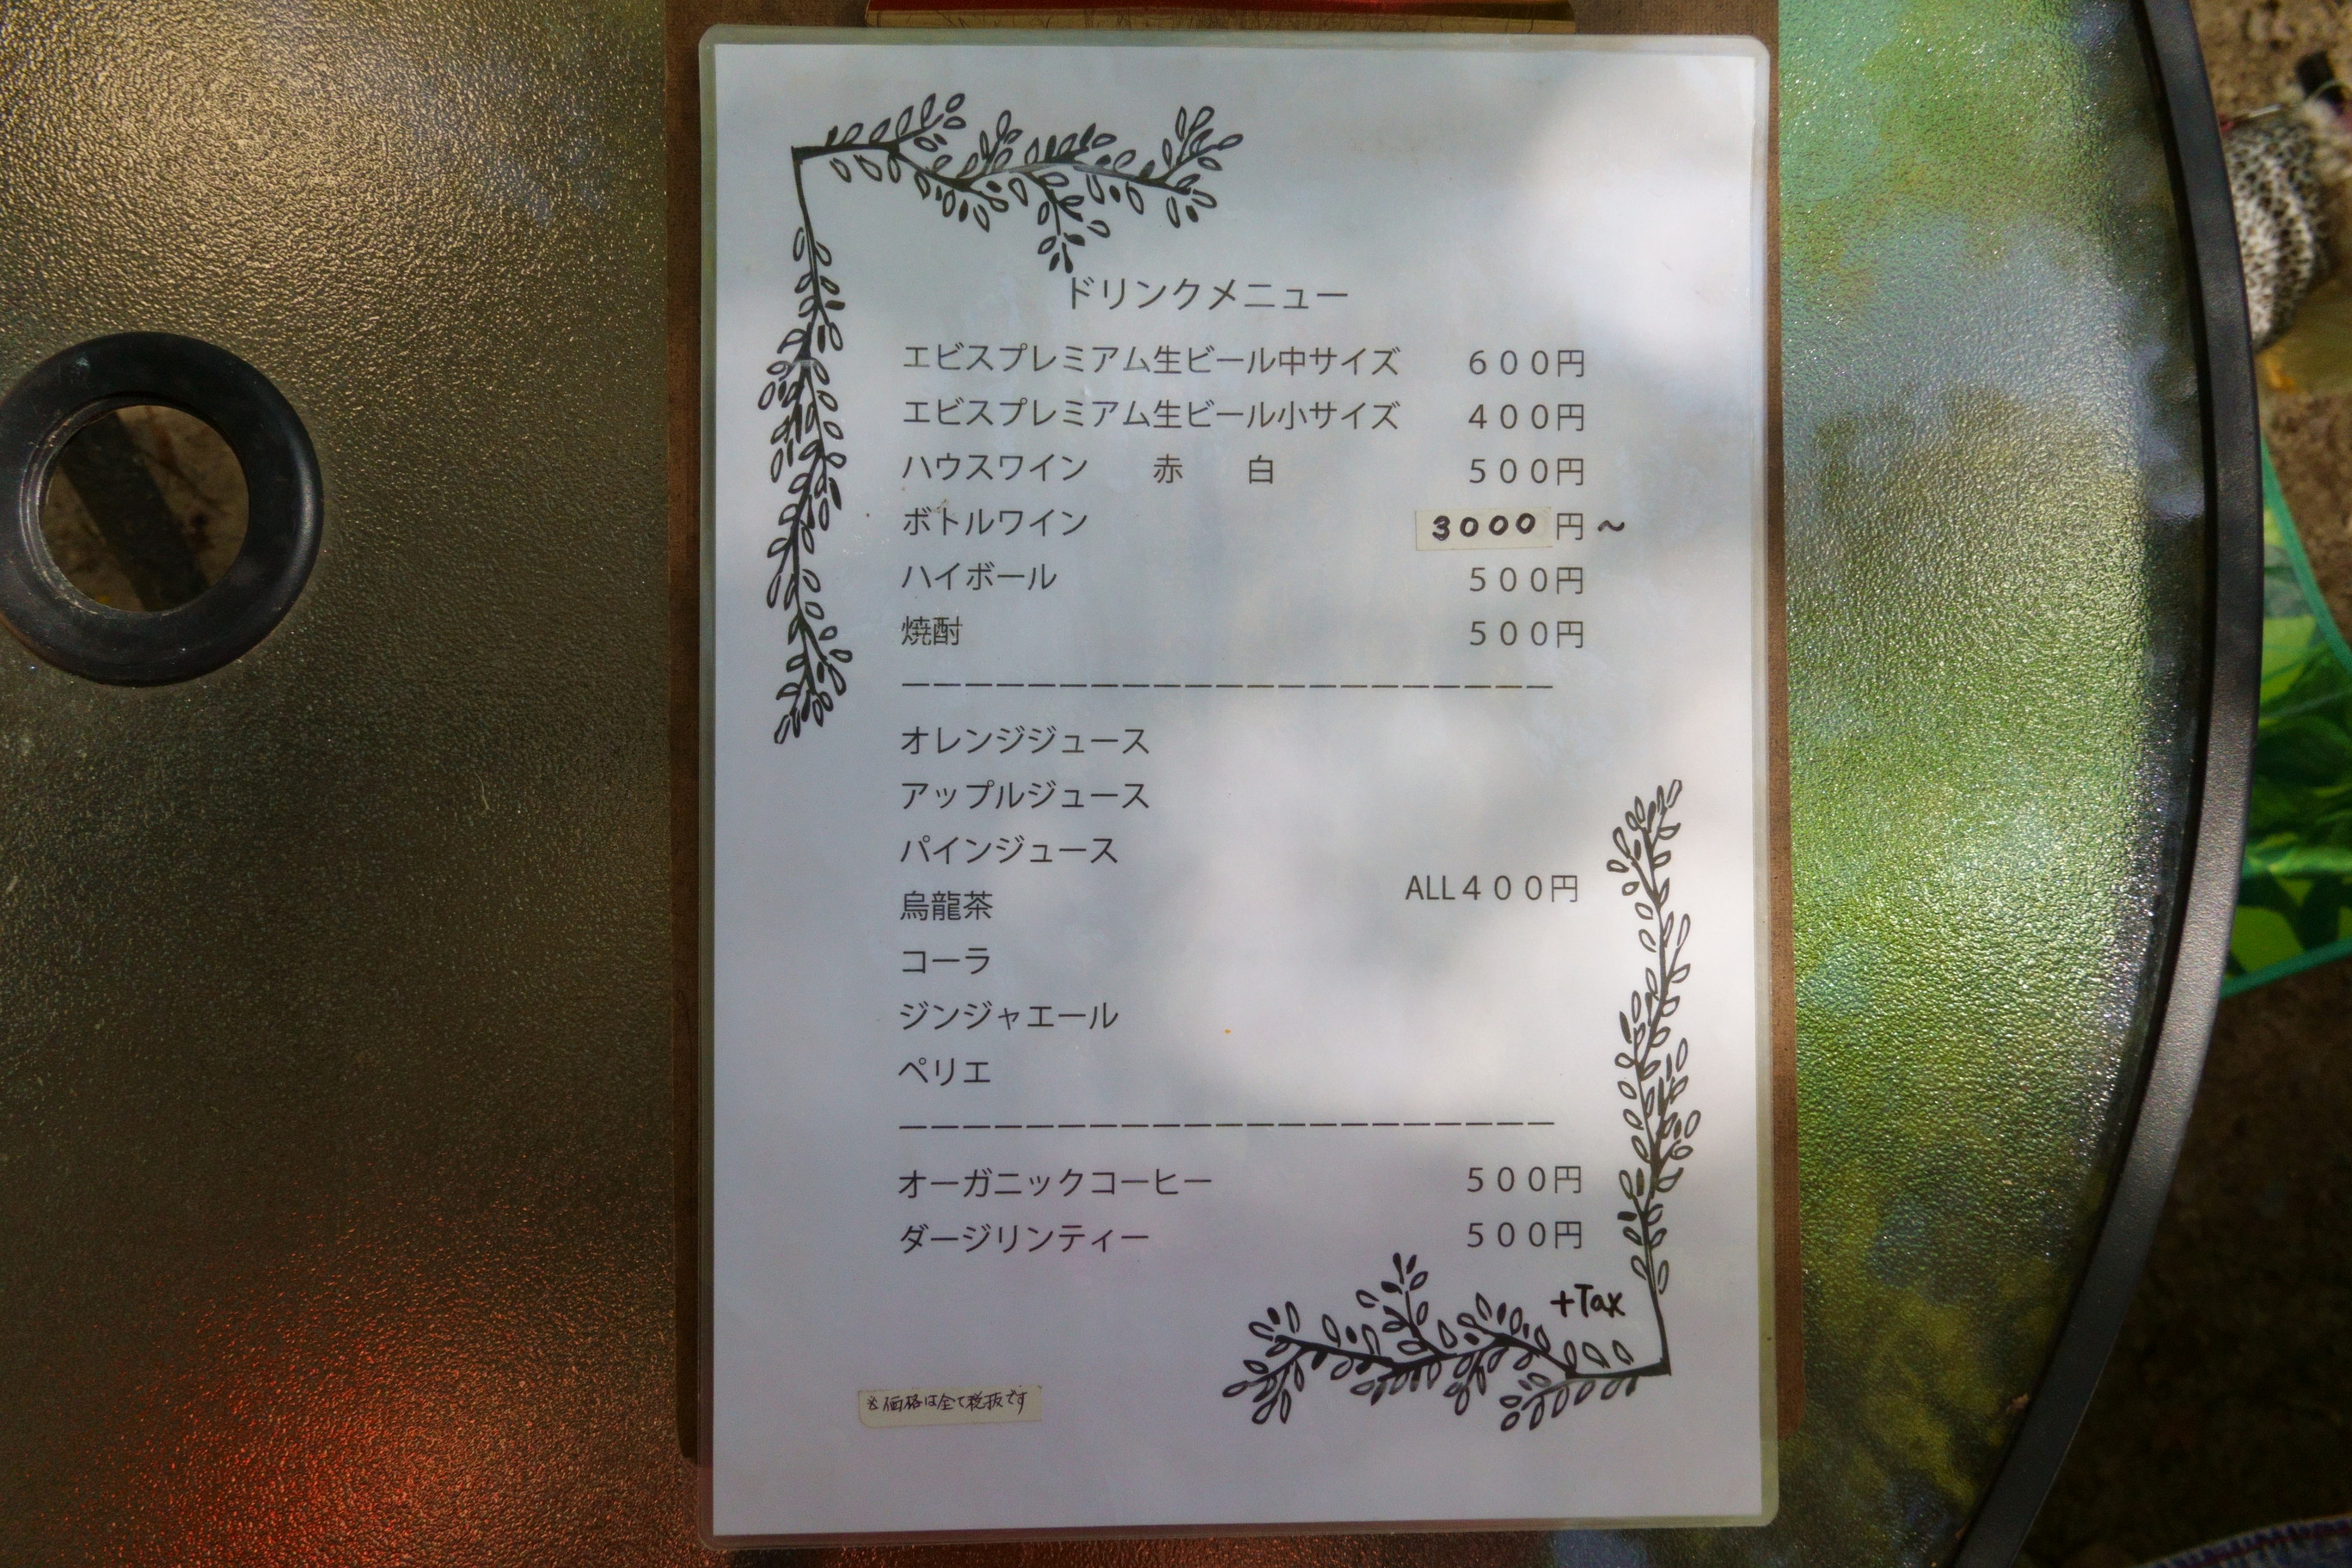 ドリンクメニュー
エビスプレミアム生ビール中サイズ　６００円
エビスプレミアム生ビール小サイズ　４００円
ハウスワイン　　赤　　白　５００円
ボトルワイン　3000円～
ハイボール　５００円
焼酎　５００円
ーーーーーーーーーーーーーーーーーーーーー
オレンジジュース
アップルジュース
パインジュース
烏龍茶
ALL４００円
コーラ
ジンジャエール
ペリエ
ーーーーーーーーーーーーーーーーーーーーー
オーガニックコーヒー　５００円
ダージリンティー　５００円
+Tax
※価格は全て税抜です